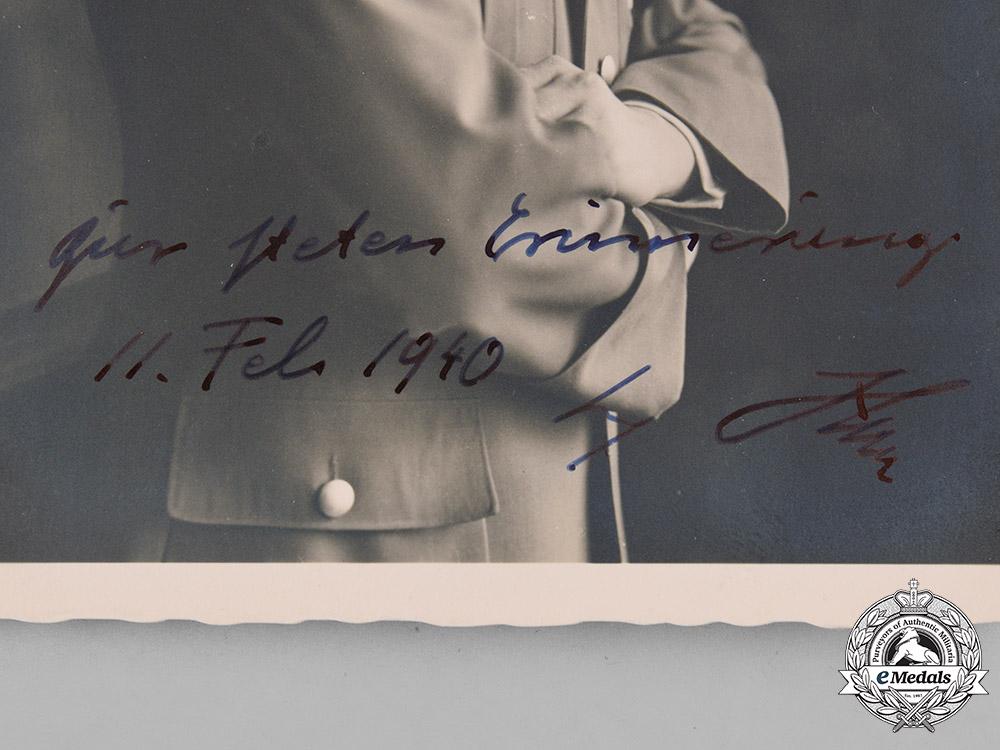 Zur steten Erinnerung
11. Feb. 1940
Purveyors of Authentic Militaria
eMedals
Est. 1997